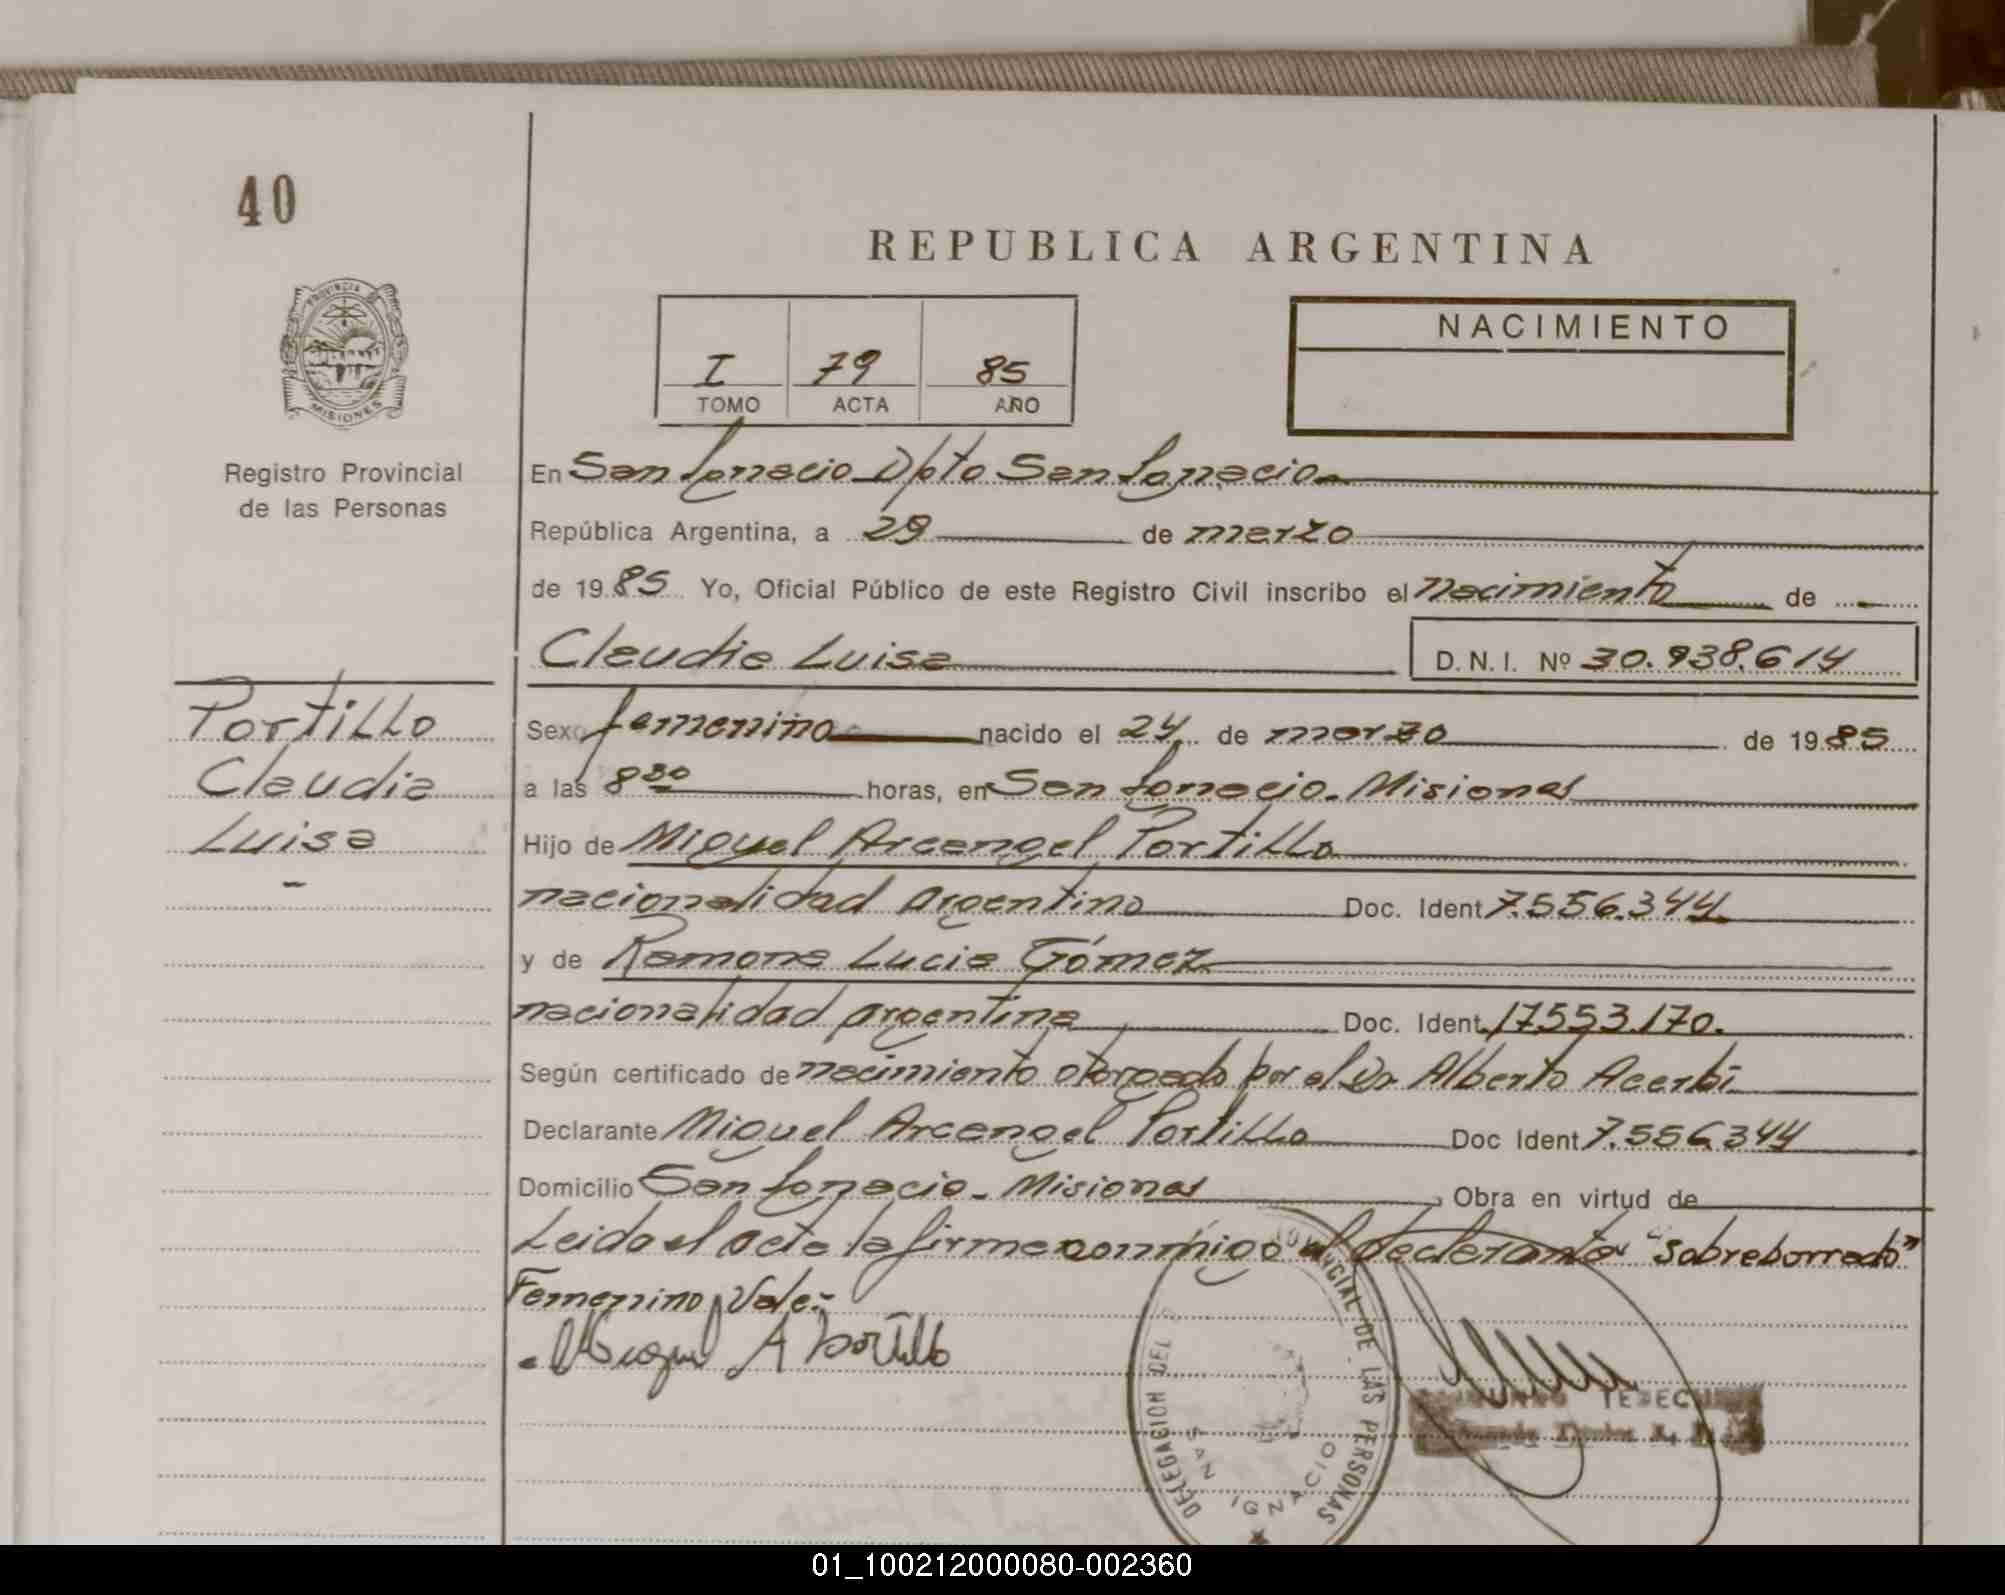 40
REPUBLICA ARGENTINA
PROVINCIA
MISIONES
Registro Provincial
de las Personas
I 79 85
TOMO ACTA AÑO
NACIMIENTO
En San Ignacio Dpto San Ignacio
República Argentina, a 29 de marzo
de 1985 Yo, Oficial Público de este Registro Civil inscribo el Nacimiento de
Claudia Luisa D.N.I. Nº 30.938.614
Portillo
Claudia
Luisa
Sexo femenino nacido el 24 de marzo de 1985
a las 8 30 horas, en San Ignacio. Misiones
Hijo de Miguel Arcangel Portillo
nacionalidad argentino Doc. Ident 7.556.344
y de Ramona Lucia Gómez
nacionalidad argentina Doc. Ident. 17.553.170.
Según certificado de nacimiento otorgado por el Dr. Alberto Acerbi
Declarante Miguel Arcangel Portillo Doc Ident 7.556.344
Domicilio San Ignacio - Misiones, Obra en virtud de
Leida el acta la firma conmigo el declarante "sobreborrado"
Femenino, Vale:-
Miguel A Portillo
DELEGACION DEL PROVINCIAL DE LAS PERSONAS
SAN IGNACIO
01_100212000080-002360